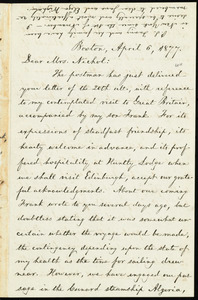 Boston, April 6, 1877.
Dear Mrs. Nichol:
The postman has just delivered
your letter of the 20th ult., with reference
to my contemplated visit to Great Britain,
accompanied by my son Frank. For its
expressions of steadfast friendship, its
hearty welcome in advance, and its prof-
fered hospitality at Huntly Lodge when
we shall visit Edinburgh, accept our grate-
ful acknowledgments. About our coming
Frank wrote to you several days ago, but
doubtless stating that it was somewhat un-
certain whether the voyage would be made,
the contingency depending upon the state of
my health as the time for sailing drew
near. However, we have engaged our pas-
sage in the Cunard steamship Algeria,